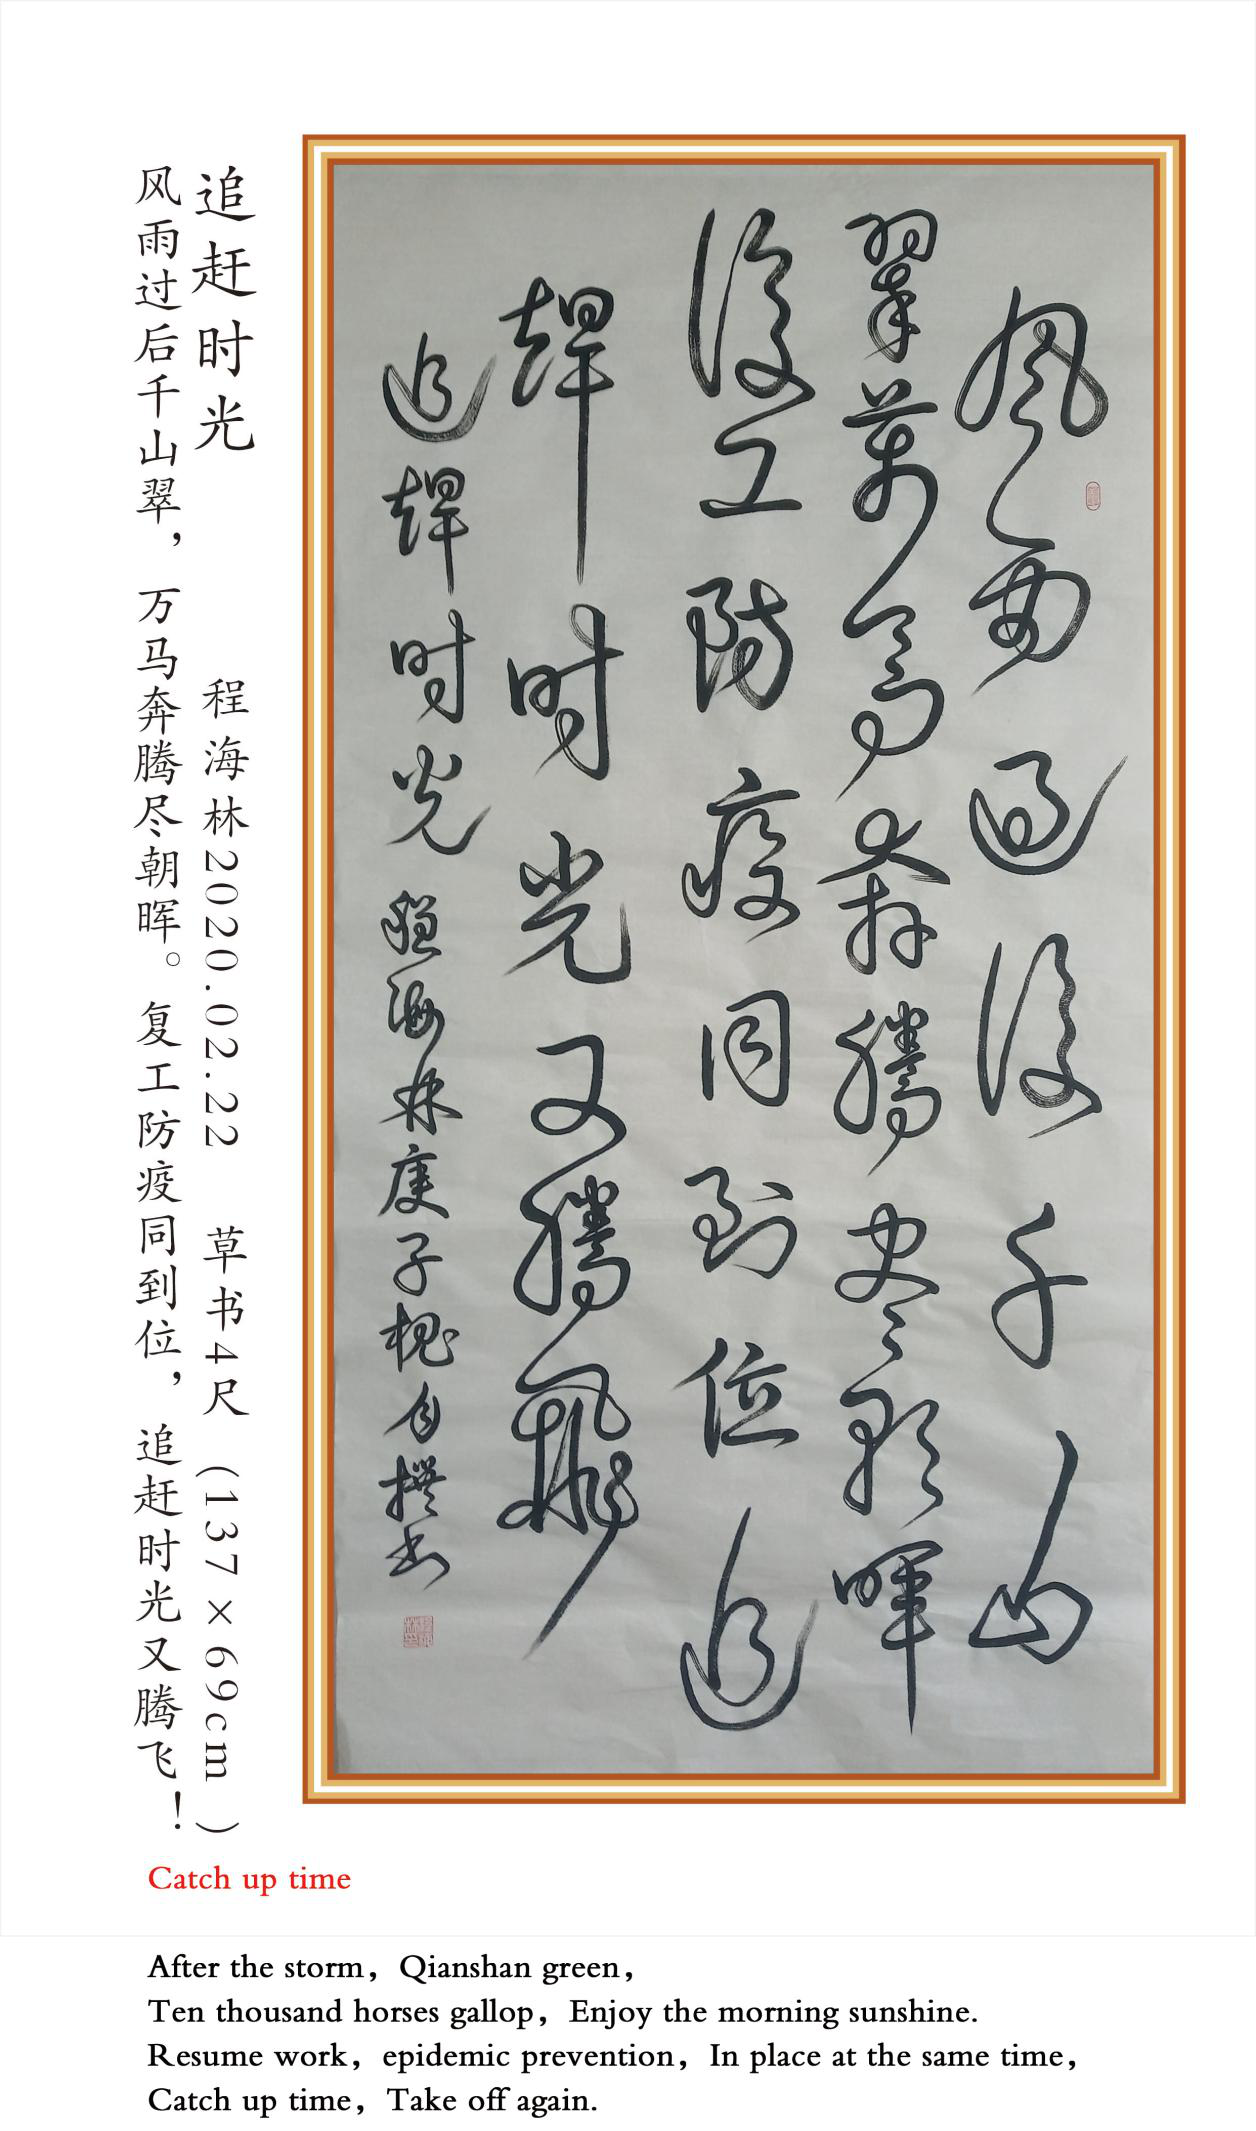 追赶时光
程海林2020.02.22 草书4尺(137×69cm)
风雨过后千山翠，万马奔腾尽朝晖。复工防疫同到位，追赶时光又腾飞！
風雨過後千山
翠萬馬奔騰尽朝暉
復工防疫同到位追
趕时光又騰飛
追趕时光 程海林庚子槐自撰书
Catch up time
After the storm，Qianshan green，
Ten thousand horses gallop，Enjoy the morning sunshine.
Resume work，epidemic prevention，In place at the same time，
Catch up time，Take off again.